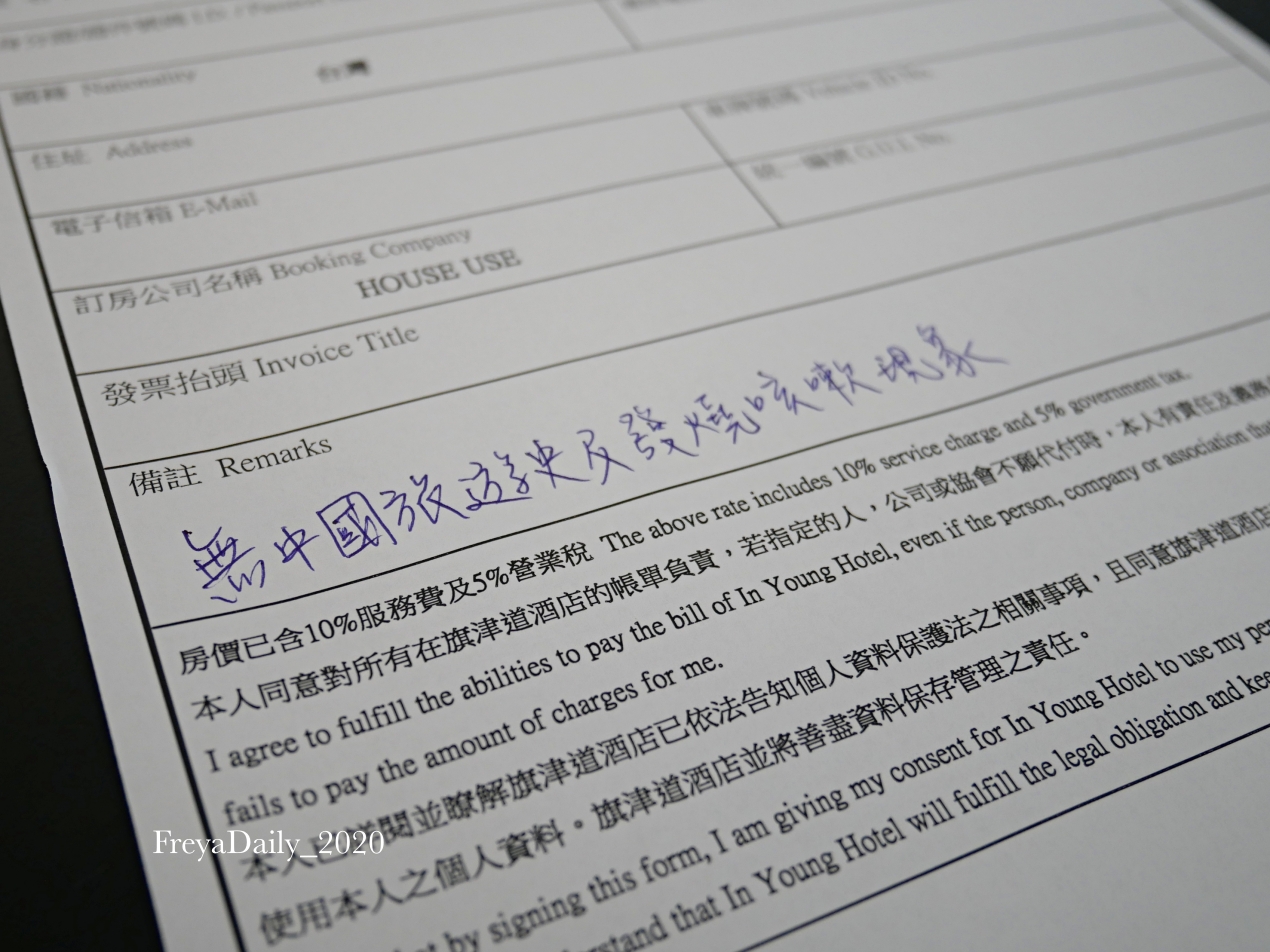 國籍 Nationality 台灣
住址 Address
車牌號碼 Vehicle ID No.
電子信箱 E-Mail
統一編號 G.U.I. No.
訂房公司名稱 Booking Company
HOUSE USE
發票抬頭 Invoice Title
備註 Remarks
無中國旅遊史及發燒咳嗽現象
房價已含10%服務費及5%營業稅 The above rate includes 10% service charge and 5% government tax.
本人同意對所有在旗津道酒店的帳單負責，若指定的人，公司或協會不願代付時，本人有責任及義務
I agree to fulfill the abilities to pay the bill of In Young Hotel, even if the person, company or association
fails to pay the amount of charges for me.
本人已詳閱並瞭解旗津道酒店已依法告知個人資料保護法之相關事項，且同意旗津道酒店
使用本人之個人資料。旗津道酒店並將善盡資料保存管理之責任。
by signing this form, I am giving my consent for In Young Hotel to use my
that In Young Hotel will fulfill the legal obligation and
FreyaDaily_2020